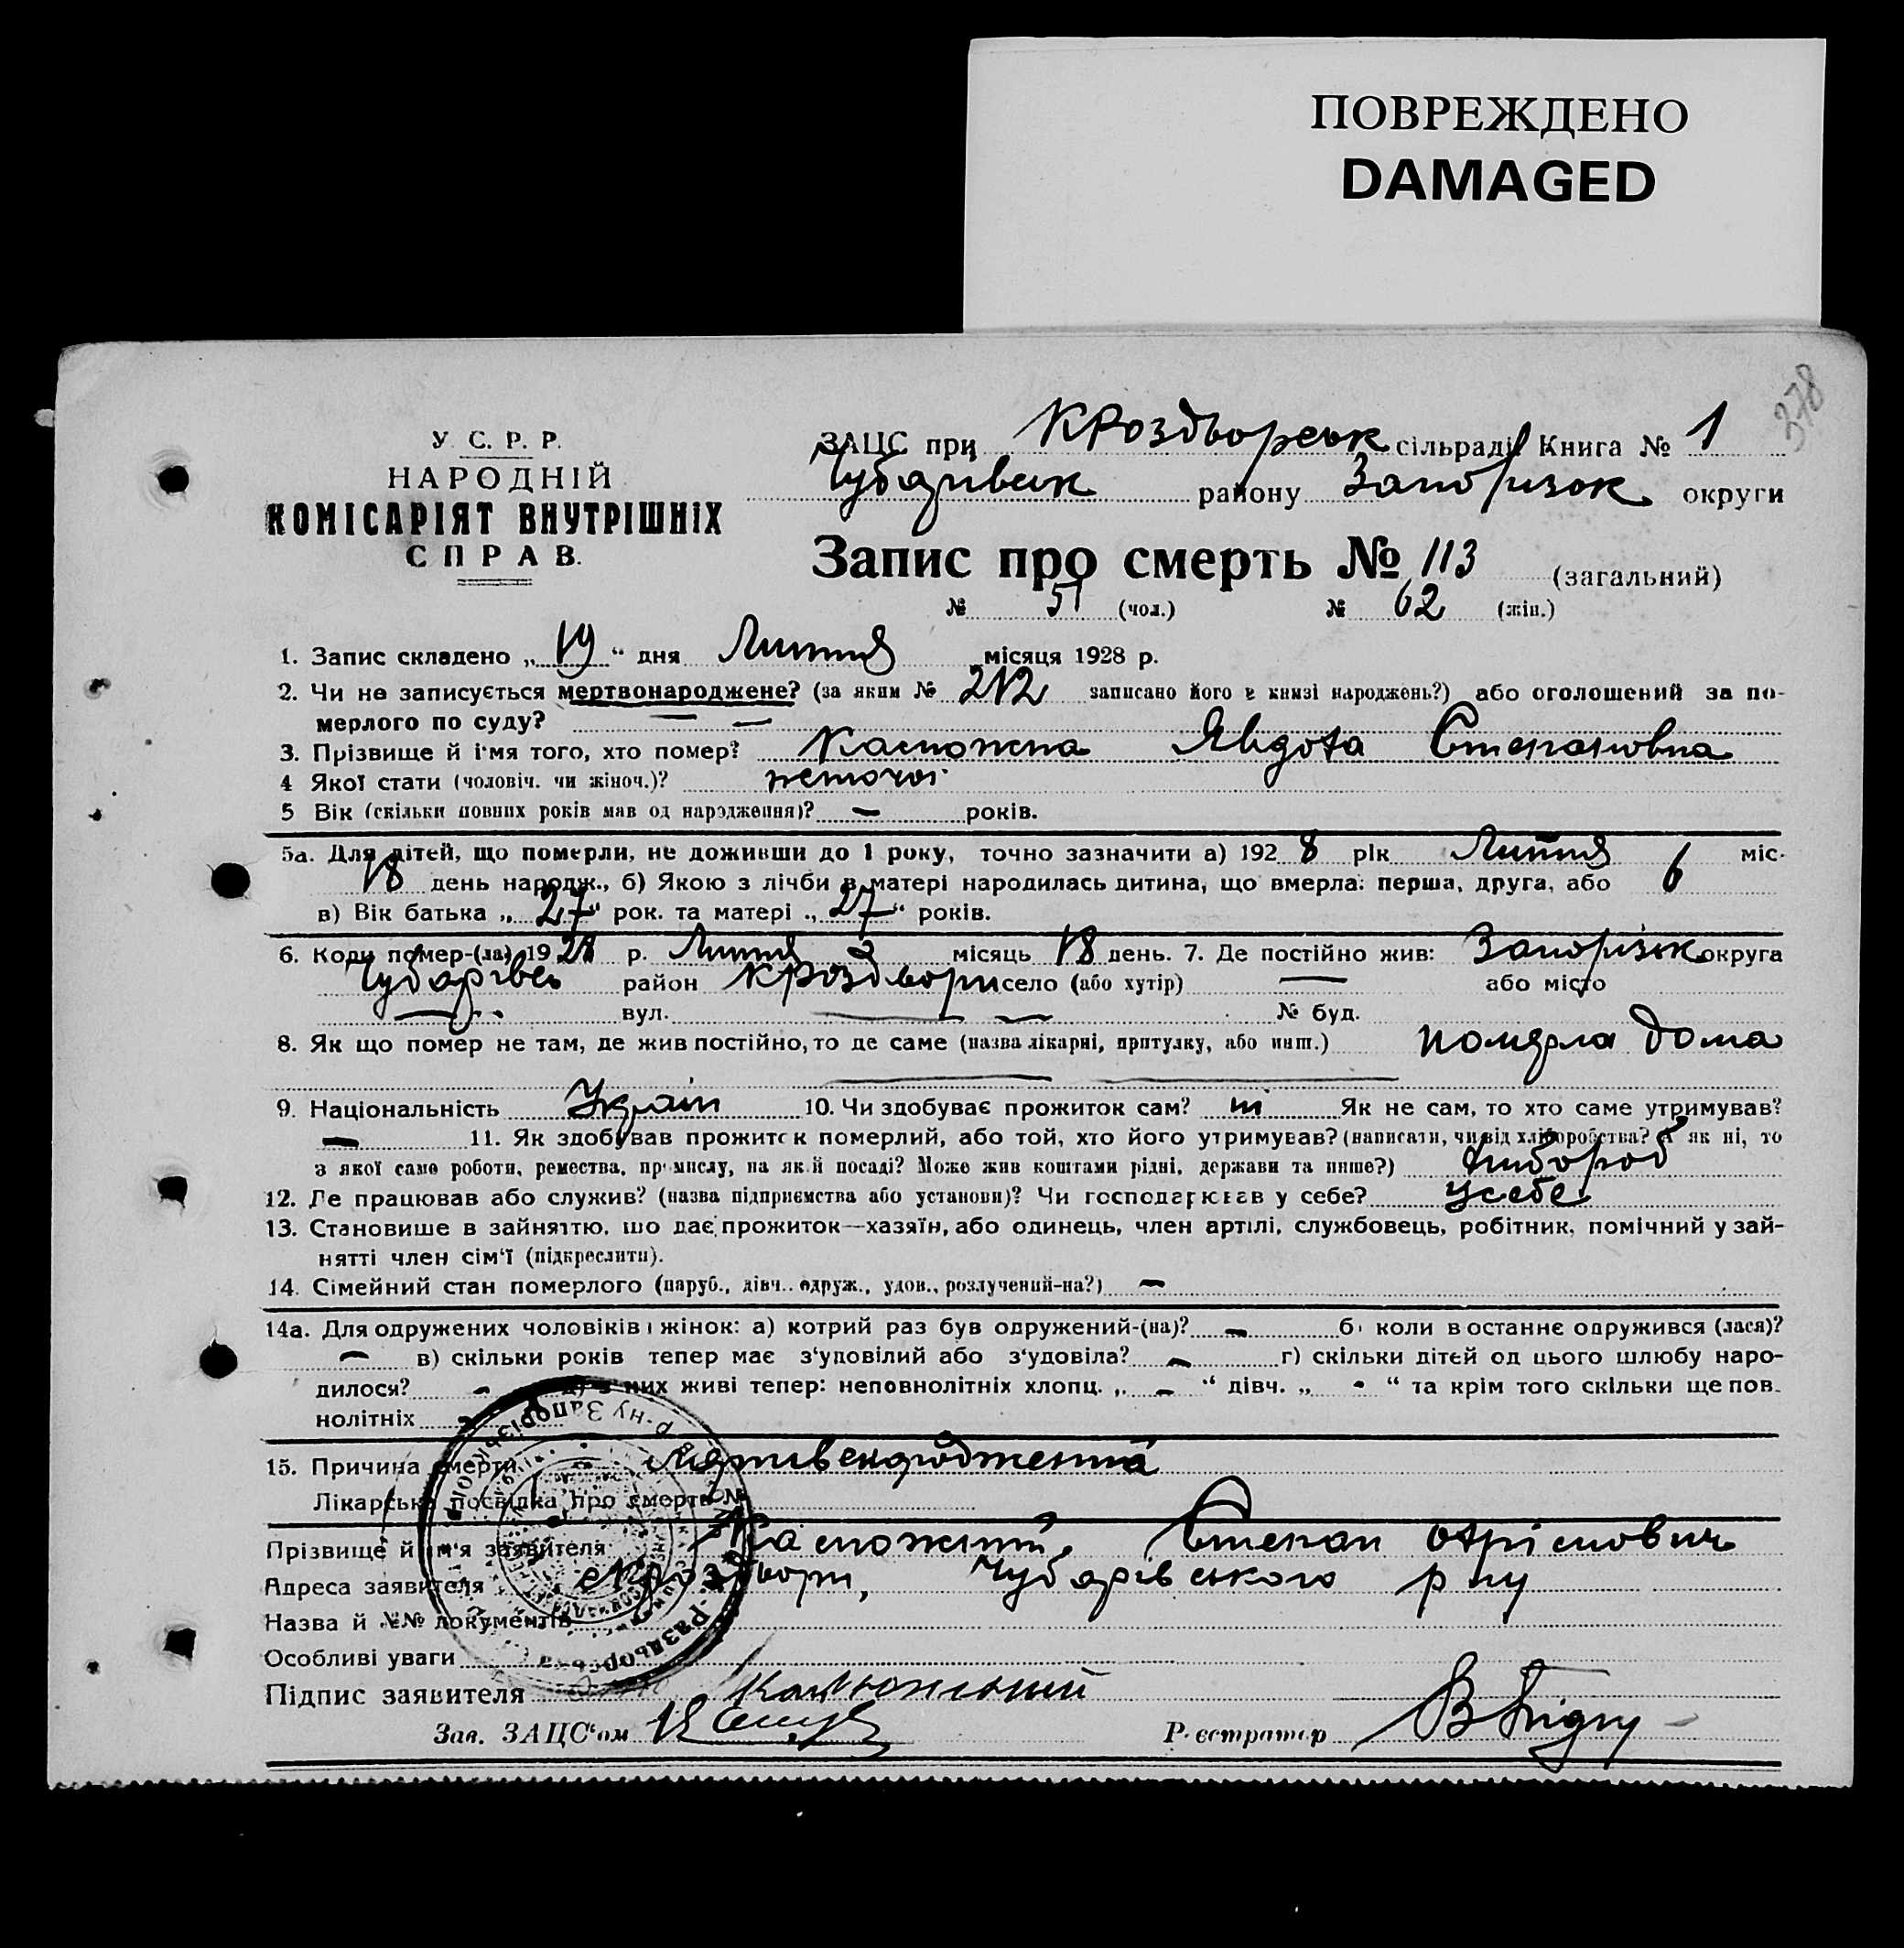 ПОВРЕЖДЕНО
DAMAGED
378
У. С. Р. Р.
НАРОДНІЙ
КОМІСАРІЯТ ВНУТРІШНІХ
СПРАВ.
ЗАЦС при КРоздворськ сільраді Книга № 1
Чубарівськ району Запоризьк округи
Запис про смерть № 113 (загальний)
№ 51 (чол.) № 62 (жін.)
1. Запис складено „19“ дня Липня місяця 1928 р.
2. Чи не записується мертвонароджене? (за яким № 212 записано його в книзі народжень?) або оголошений за по-
мерлого по суду? — —
3. Прізвище й ім'я того, хто помер? Явдоха Степановна
4 Якої стати (чоловіч. чи жіноч.)?
5 Вік (скільки повних років мав од народження)? — років.
5а. Для дітей, що померли, не доживши до 1 року, точно зазначити а) 1928 рік Липня 6 міс.
18 день народж., б) Якою з лічби в матері народилась дитина, що вмерла: перша, друга, або 6
в) Вік батька „27“ рок. та матері „27“ років.
6. Коли помер-(ла) 1928 р. Липня місяць 18 день. 7. Де постійно жив: Запорізьк округа
район КРоздвори село (або хутір) — або місто
— вул. — — № буд.
8. Як що помер не там, де жив постійно, то де саме (назва лікарні, притулку, або инш.) помєрла дома
9. Національність Україн 10. Чи здобуває прожиток сам? ні Як не сам, то хто саме утримував?
— 11. Як здобував прожиток померлий, або той, хто його утримував? (написати, чи від хліборобства? А як ні, то
з якої саме роботи, ремества, промислу, на якій посаді? Може жив коштами рідні, держави та инше?) хлібороб
12. Де працював або служив? (назва підприємства або установи)? Чи господарював у себе? усебе
13. Становище в зайняттю, що дає прожиток—хазяїн, або одинець, член артілі, службовець, робітник, помічний у зай-
нятті член сім'ї (підкреслити).
14. Сімейний стан померлого (паруб., дівч.. одруж., удов., розлучений-на?) —
14а. Для одружених чоловіків і жінок: а) котрий раз був одружений-(на)? — б) коли востаннє одружився (лася)?
— в) скільки років тепер має з'удовілий або з'удовіла? — г) скільки дітей од цього шлюбу наро-
дилося? — д) з них живі тепер: неповнолітніх хлопц. „ — “ дівч. „ - “ та крім того скільки ще пов-
нолітніх
15. Причина смерти
Лікарська посвідка про смерть №
Прізвище й ім'я заявителя Степан
Адреса заявителя сКРоздвори, Чубарівського р ну
Назва й №№ документів
Особливі уваги
Підпис заявителя
Зав. ЗАЦС'ом
Реєстратор